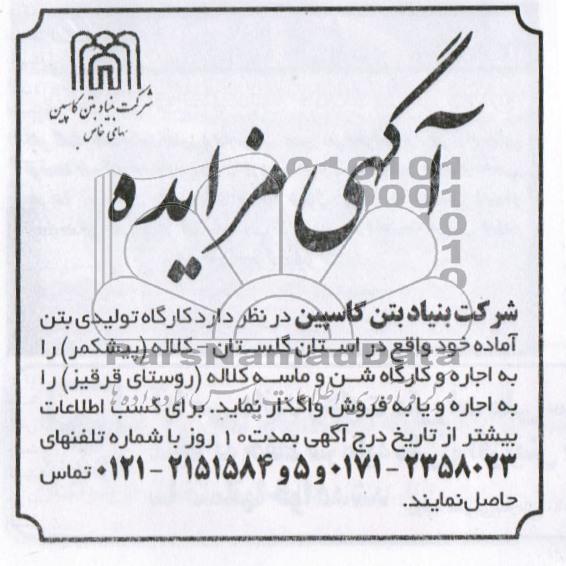 شرکت بنیاد بتن کاسپین
سهامی خاص
آگهی مزایده
شرکت بنیاد بتن کاسپین در نظر دارد کارگاه تولیدی بتن
آماده خود واقع در استان گلستان - کلاله (پیشکمر) را
به اجاره و کارگاه شن و ماسه کلاله (روستای قرقیز) را
به اجاره و یا به فروش واگذار نماید. برای کسب اطلاعات
بیشتر از تاریخ درج آگهی بمدت ۱۰ روز با شماره تلفنهای
۲۳۵۸۰۲۳ - ۰۱۷۱ و ۵ و ۲۱۵۱۵۸۴ - ۰۱۲۱ تماس
حاصل نمایند.
ParsNamadData